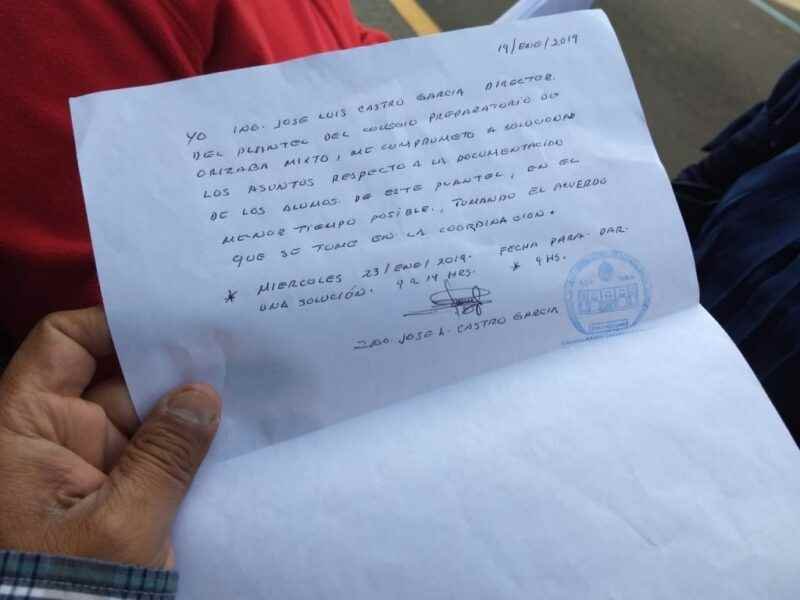 19/ENE/2019
YO ING. JOSE LUIS CASTRO GARCIA DIRECTOR
DEL PLANTEL DEL COLEGIO PREPARATORIO DE
ORIZABA MIXTO, ME COMPROMETO A SOLUCIONAR
LOS ASUNTOS RESPECTO A LA DOCUMENTACION
DE LOS ALUMOS DE ESTE PLANTEL, EN EL
MENOR TIEMPO POSIBLE., TOMANDO EL ACUERDO
QUE SE TOME EN LA COORDINACION.
* MIERCOLES 23/ENE/2019. FECHA PARA DAR.
UNA SOLUCIÓN. 9 a 14 HRS. * 9 HS.
ING. JOSE L. CASTRO GARCIA